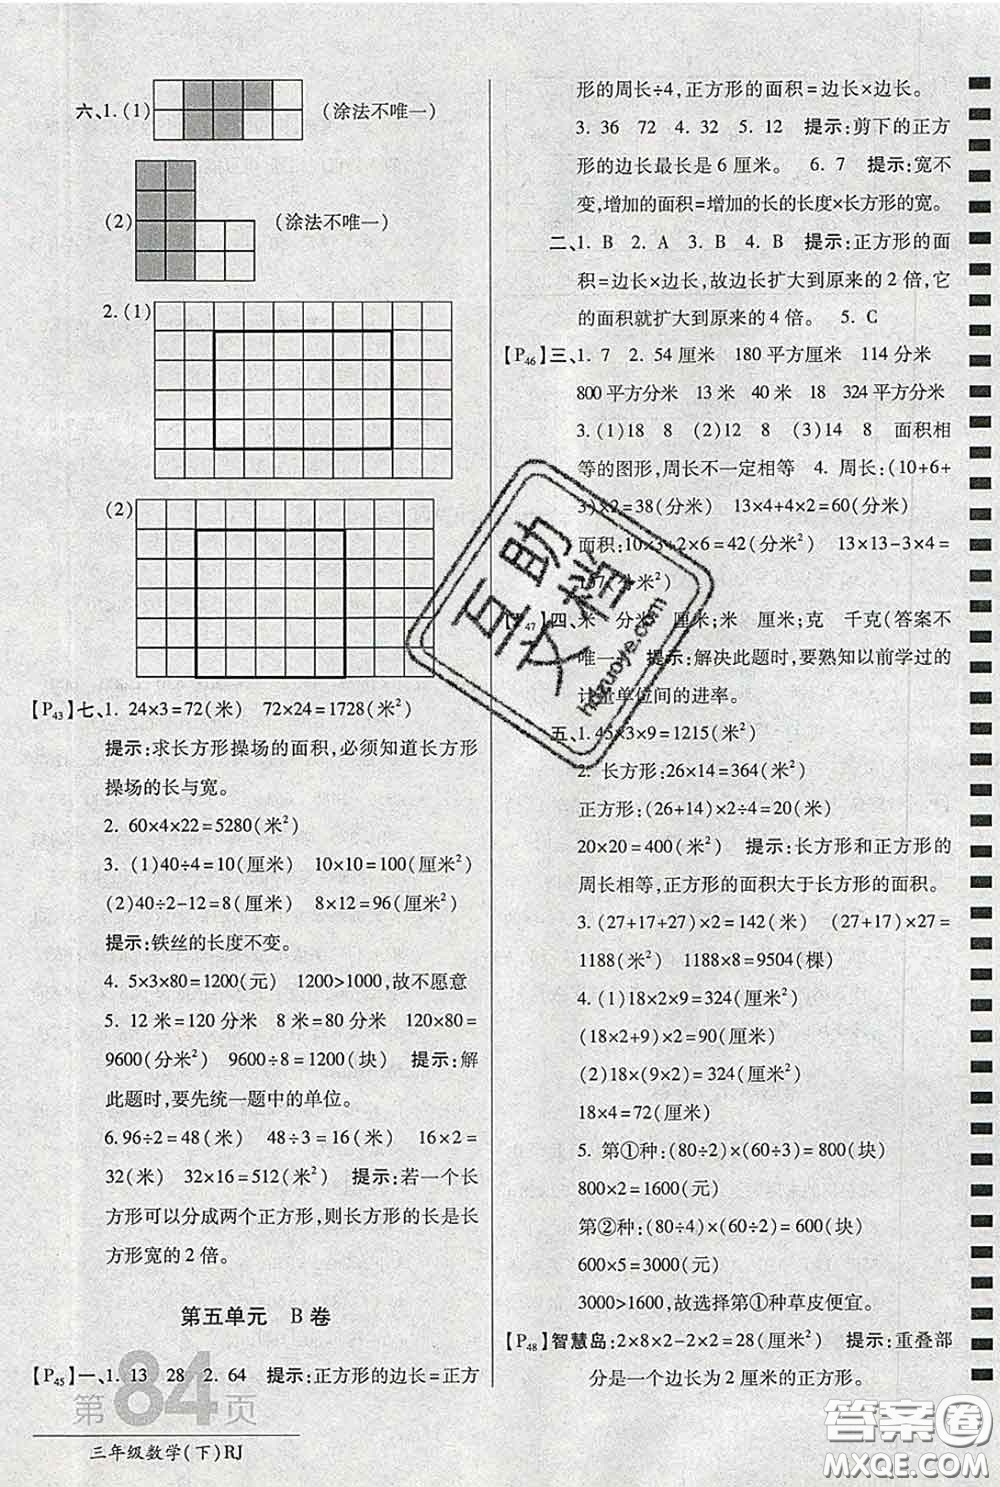 六、1.(1) (涂法不唯一)
(2) (涂法不唯一)
2.(1)
(2)
【P43】七、1. 24×3=72(米) 72×24=1728(米²)
提示:求长方形操场的面积,必须知道长方形
操场的长与宽。
2. 60×4×22=5280(米²)
3. (1)40÷4=10(厘米) 10×10=100(厘米²)
(2)40÷2-12=8(厘米) 8×12=96(厘米²)
提示:铁丝的长度不变。
4. 5×3×80=1200(元) 1200>1000,故不愿意
5. 12米=120分米 8米=80分米 120×80=
9600(分米²) 9600÷8=1200(块) 提示:解
此题时,要先统一题中的单位。
6. 96÷2=48(米) 48÷3=16(米) 16×2=
32(米) 32×16=512(米²) 提示:若一个长
方形可以分成两个正方形,则长方形的长是长
方形宽的2倍。
第五单元 B卷
【P45】一、1. 13 28 2. 64 提示:正方形的边长=正方
形的周长÷4,正方形的面积=边长×边长。
3. 36 72 4. 32 5. 12 提示:剪下的正方
形的边长最长是6厘米。 6. 7 提示:宽不
变,增加的面积=增加的长的长度×长方形的宽。
二、1. B 2. A 3. B 4. B 提示:正方形的面
积=边长×边长,故边长扩大到原来的2倍,它
的面积就扩大到原来的4倍。 5. C
【P46】三、1. 7 2. 54厘米 180平方厘米 114分米
800平方分米 13米 40米 18 324平方分米
3. (1)18 8 (2)12 8 (3)14 8 面积相
等的图形,周长不一定相等 4. 周长:(10+6+
3)×2=38(分米) 13×4+4×2=60(分米)
面积:10×3+2×6=42(分米²) 13×13-3×4=
157(分米²)
【P47】四、米 分米 厘米;米 厘米;克 千克(答案不
唯一) 提示:解决此题时,要熟知以前学过的
计量单位间的进率。
五、1. 45×3×9=1215(米²)
2. 长方形:26×14=364(米²)
正方形:(26+14)×2÷4=20(米)
20×20=400(米²) 提示:长方形和正方形的
周长相等,正方形的面积大于长方形的面积。
3. (27+17+27)×2=142(米) (27+17)×27=
1188(米²) 1188×8=9504(棵)
4. (1)18×2×9=324(厘米²)
(18×2+9)×2=90(厘米)
(2)18×(9×2)=324(厘米²)
18×4=72(厘米)
5. 第①种:(80÷2)×(60÷3)=800(块)
800×2=1600(元)
第②种:(80÷4)×(60÷2)=600(块)
600×5=3000(元)
3000>1600,故选择第①种草皮便宜。
【P48】智慧岛:2×8×2-2×2=28(厘米²) 提示:重叠部
分是一个边长为2厘米的正方形。
第84页
三年级数学(下)RJ
互助文档
hdzuoye.com
答案卷
MXQE.COM